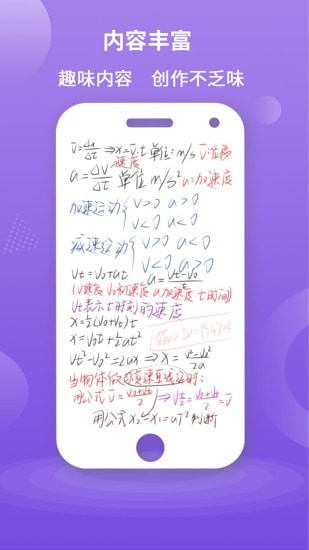 内容丰富
趣味内容 创作不乏味
v̄=Δx/Δt ⇒x=v̄·t 单位:m/s v̄:
速度
a=ΔV/Δt 单位 m/s² a:加速度
加速运动{V>0 a>0
V<0 a<0
减速运动{V>0 a<0
V<0 a>0
Vt=V0+at a=(Vt-V0)/t
(V速度 V0初速度 a加速度 t时间)
Vt表示t时刻的速度
x=½(V0+Vt)t
x=V0t+½at²
Vt²-V0²=2ax ⇒ x=(V²-V0²)/2a
当物体做匀变速直线运动时:
用公式 v̄=(V0+Vt)/2 ⇒ Vt/2=(V0+Vt)/2=v̄
用公式x2-x1=aT²判断